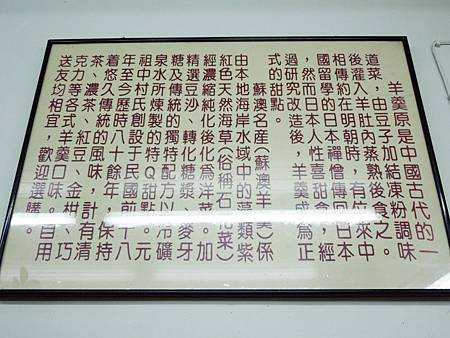 羊羹原是中國古代的一
道菜，由豆子加結凍粉調味
後灌入羊肚內蒸熟後食之。
相傳約在明朝時，有位來中
國留學的日本禪僧傳回日本
，然而日本人性喜甜食，經
過研究改造後，羊羹成為正
式的甜點。
蘇澳名産（蘇澳羊羹）係
由本地海岸水域中的藻類紫
紅色天然海草（俗稱石花菜）
經濃縮純化後化為洋菜。加
精選豆沙、轉化糖漿、麥牙
糖及傳統的獨特配方以冷礦
泉水所煉製的特Q甜點。元
祖中村氏創設于民國前十八
年至今歷時八十餘年，保持
着悠久傳統的風味，計有清
茶、濃茶、紅豆、金柑、巧
克力…等各式羊羹口味。自用
送友均相宜，歡迎選購。